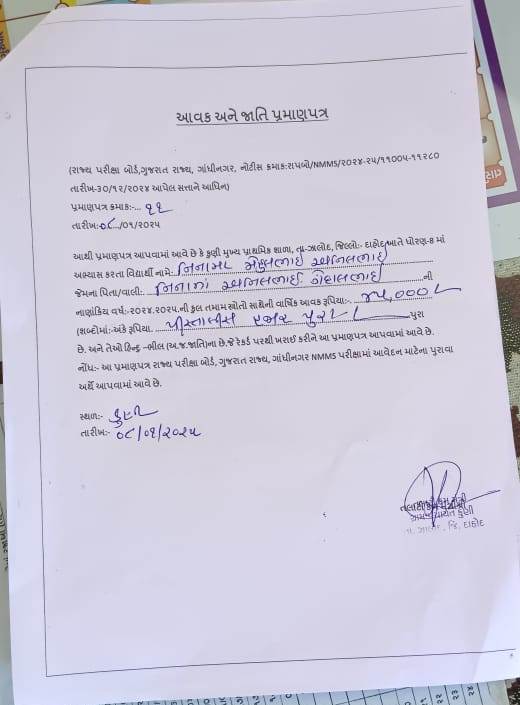 આવક અને જાતિ પ્રમાણપત્ર
(રાજ્ય પરીક્ષા બોર્ડ,ગુજરાત રાજ્ય, ગાંધીનગર, નોટીસ ક્રમાક:રાપબો/NMMS/૨૦૨૪-૨૫/૧૧૦૦૫-૧૧૨૮૦
તારીખ-૩૦/૧૨/૨૦૨૪ આપેલ સત્તાને આધિન)
પ્રમાણપત્ર ક્રમાક:-... ૧૧
તારીખઃ૦૮../૦૧/૨૦૨૫
આથી પ્રમાણપત્ર આપવામાં આવે છે કે કુણી મુખ્ય પ્રાથમિક શાળા, તા-ઝાલોદ, જિલ્લો:- દાહોદ ખાતે ધોરણ-૮ માં
અભ્યાસ કરતા વિદ્યાર્થી નામે: નિનામા મેહુલભાઈ અનિલભાઈ
જેમના પિતા/વાલી:- નિનામા અનિલભાઈ ની
નાણાંકિય વર્ષ:-૨૦૨૪.૨૦૨૫.ની કુલ તમામ સ્ત્રોતો સાથેની વાર્ષિક આવક રૂપિયા:- ૪૫,૦૦૦/-
(શબ્દોમાં:-અંકે રૂપિયા. પીસ્તાલીસ હજાર પુરા પુરા
છે. અને તેઓ હિન્દુ -ભીલ (અ.જ.જાતિ)ના છે.જે રેકર્ડ પરથી ખરાઈ કરીને આ પ્રમાણપત્ર આપવામાં આવે છે.
નોંધ:- આ પ્રમાણપત્ર રાજ્ય પરીક્ષા બોર્ડ, ગુજરાત રાજ્ય, ગાંધીનગર NMMS પરીક્ષામાં આવેદન માટેના પુરાવા
અર્થે આપવામાં આવે છે.
સ્થળ:- કુણી
તારીખ:- ૦૮/૦૧/૨૦૨૫
ગ્રામ પંચાયત કુણી
તા. જિ. દાહોદ